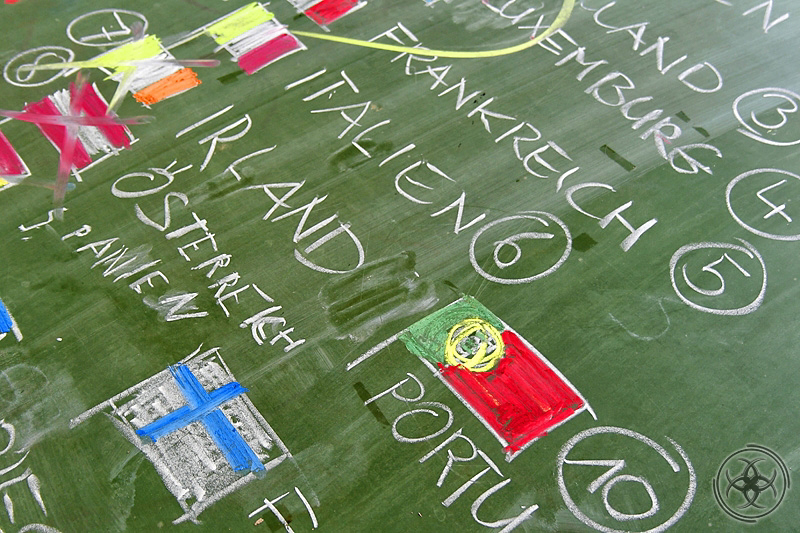 N
LAND
3
LUXEMBURG
4
FRANKREICH
5
ITALIEN
6
IRLAND
7
ÖSTERREICH
8
SPANIEN
PORTU
10
FI